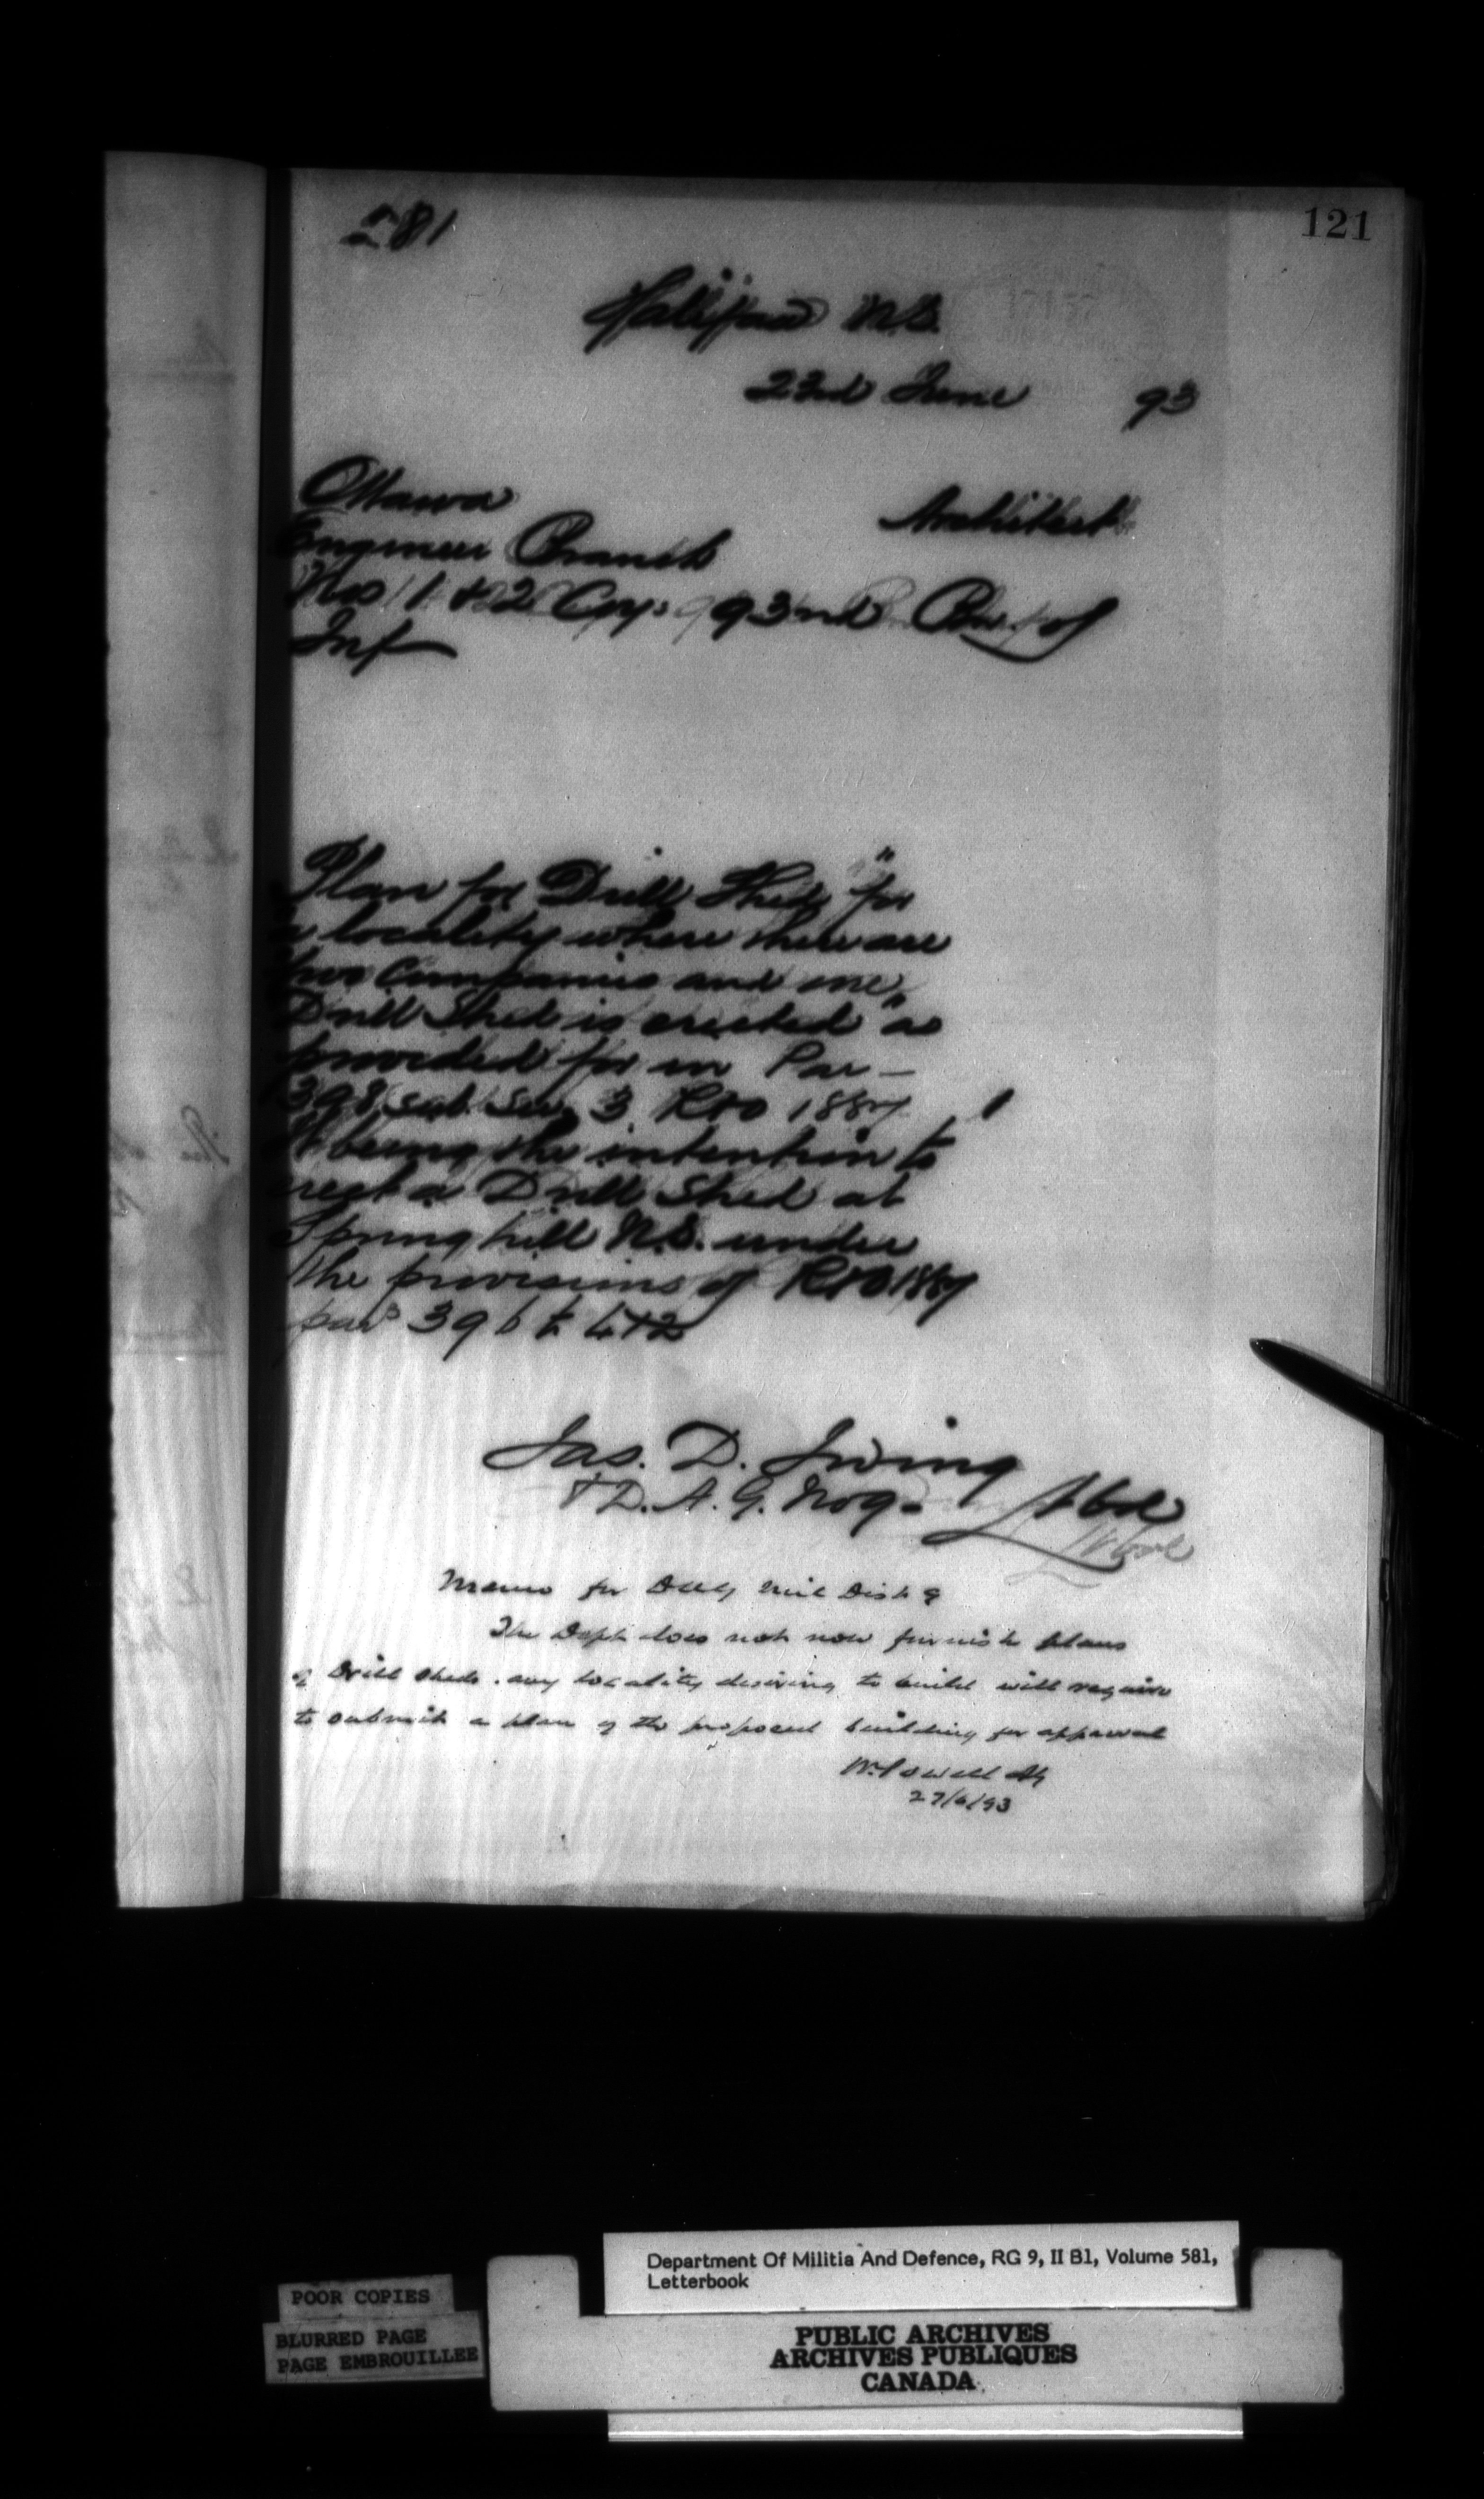 281
121
Halifax N.S.
23rd June 93
Ottawa
Architect
Engineer Branch
Nos 1 & 2 Cpys 93rd Batt of
Inf
Plan for Drill Shed "for
a locality where there are
two Companies and one
Drill Shed is erected" as
provided for in Par—
398 sub. Sec. 3 R&O 1887
It being the intention to
erect a Drill Shed at
Springhill N.S. under
the provisions of R&O 1887
pars 396 to 412
Jas. D. Irving
D.A.G. No 9. Lt Col
Memo for DAG Mil Dist 9
The Dept does not now furnish plans
of Drill Sheds. any locality desiring to build will require
to submit a plan of the proposed building for approval
W. Powell AG
27/6/93
Department Of Militia And Defence, RG 9, II B1, Volume 581,
Letterbook
POOR COPIES
BLURRED PAGE
PAGE EMBROUILLEE
PUBLIC ARCHIVES
ARCHIVES PUBLIQUES
CANADA